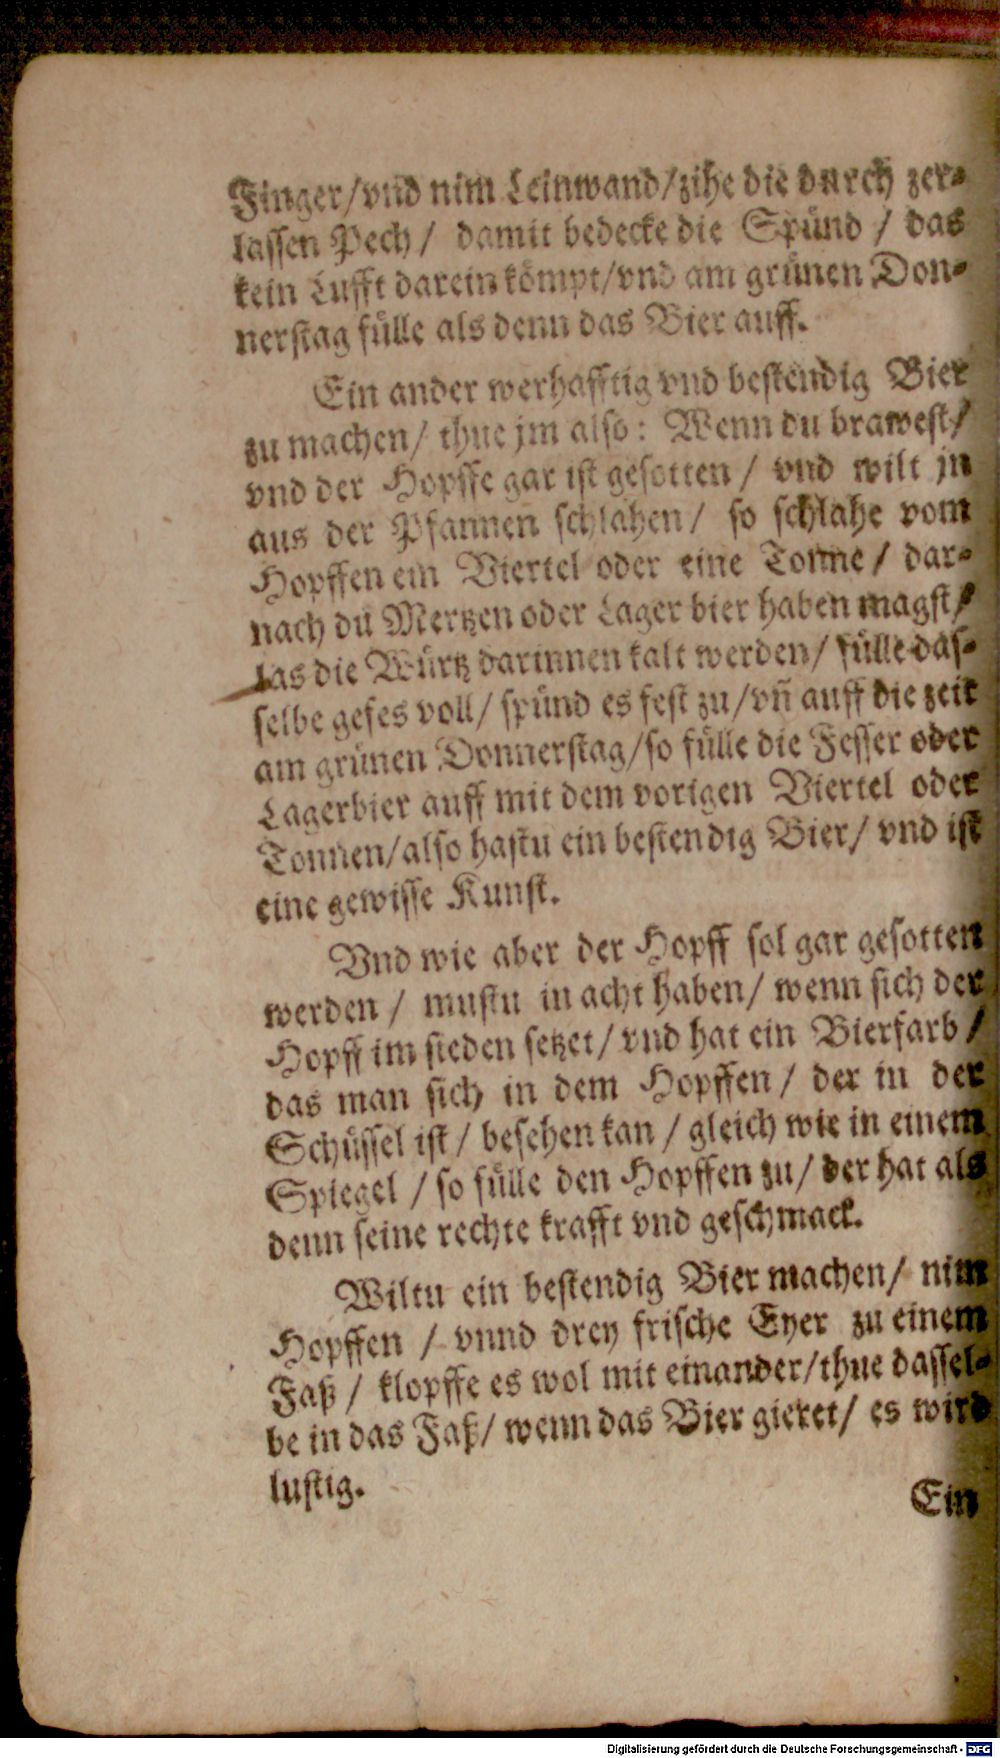 Finger/vnd nim Leinwand/zihe die durch zer-
lassen Pech/ damit bedecke die Spünd / das
kein Lufft darein kömpt/vnd am grünen Don-
nerstag fülle als denn das Bier auff.
Ein ander werhafftig vnd bestendig Bier
zu machen/ thue jm also: Wenn du brawest/
vnd der Hopffe gar ist gesotten / vnd wilt jn
aus der Pfannen schlahen/ so schlahe vom
Hopffen ein Viertel oder eine Tonne / dar-
nach du Mertzen oder Lager bier haben magst/
las die Würtz darinnen kalt werden/ fülle das-
selbe gefes voll/ spünd es fest zu/vñ auff die zeit
am grünen Donnerstag/so fülle die Fesser oder
Lagerbier auff mit dem vorigen Viertel oder
Tonnen/also hastu ein bestendig Bier/ vnd ist
eine gewisse Kunst.
Vnd wie aber der Hopff sol gar gesotten
werden / mustu in acht haben/ wenn sich der
Hopff im sieden setzet/ vnd hat ein Bierfarb /
das man sich in dem Hopffen/ der in der
Schüssel ist / besehen kan / gleich wie in einem
Spiegel / so fülle den Hopffen zu/ der hat als
denn seine rechte krafft vnd geschmack.
Wiltu ein bestendig Bier machen/ nim
Hopffen / vnnd drey frische Eyer zu einem
Faß / klopffe es wol mit einander/thue dassel-
be in das Faß/ wenn das Bier gieret/ es wird
lustig.
Ein
Digitalisierung gefördert durch die Deutsche Forschungsgemeinschaft - DFG